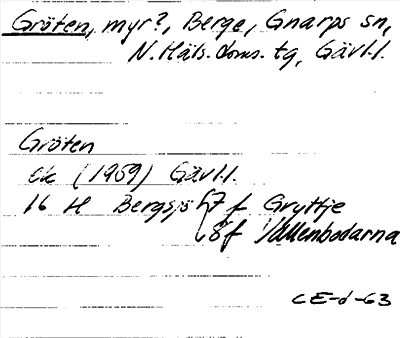 Gröten, myr?, Berge, Gnarps sn,
N. Häls. doms. tg, Gävl.l.
Gröten
ek (1959) Gävl.l.
16 H Bergsjö 7 f Gryttje
8 f Vallenbodarna
CE-d-63